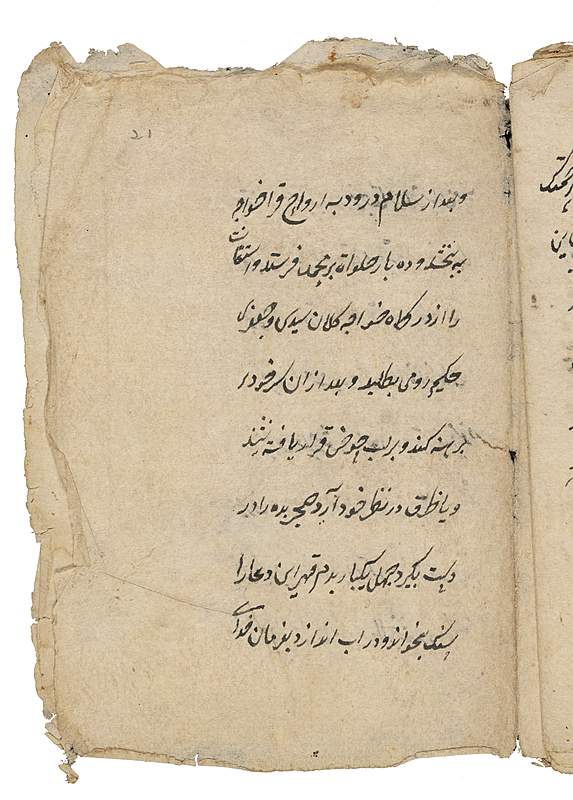 21
وبعد از سلام درود به ارواح قرا خواجه
به بخشد و ده بار صلواة بر محمد فرستد و استقانت
را از درگاه خواجه کلان سیدی و جعفری
حکیم رومی بطلبد و بعد از ان سر خود
برهنه کند و بر لب حوض قرار یافته نشیند
و یا ظرف در نظر خود آرد حجر بده را در
دست بگیرد چهل یکبار بدم قهر این دعا را
بسنگ بخواند و در اب اندازد بفرمان خدای